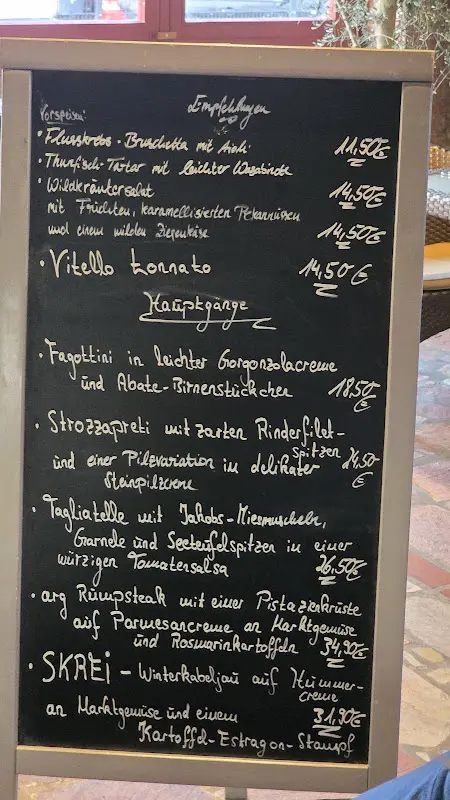 Empfehlungen
Vorspeisen:
• Flusskrebs-Bruschetta mit Aioli 11,50€
• Thunfisch-Tatar mit leichter Wasabinote 14,50€
• Wildkräutersalat
mit Früchten, karamellisierten Pekannüssen
und einem milden Ziegenkäse 14,50€
• Vitello tonnato 14,50€
Hauptgänge
• Fagottini in leichter Gorgonzolacreme
und Abate-Birnenstückchen 18,50€
• Strozzapreti mit zarten Rinderfilet-
spitzen
und einer Pilzvariation in delikater 24,50€
Steinpilzcreme
• Tagliatelle mit Jakobs-Miesmuscheln,
Garnele und Seeteufelspitzen in einer
würzigen Tomatensalsa 26,50€
• arg Rumpsteak mit einer Pistazienkruste
auf Parmesancreme an Marktgemüse
und Rosmarinkartoffeln 34,90€
• SKREI - Winterkabeljau auf Hummer-
creme
an Marktgemüse und einem 31,90€
Kartoffel-Estragon-Stampf